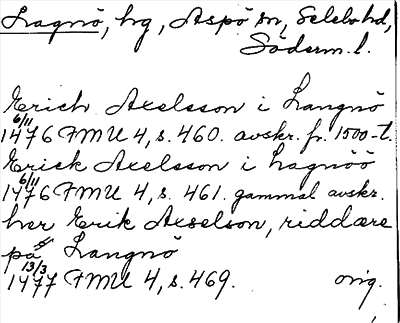 Lagnö, hg, Aspö sn, Selebohd,
Söderm. l.
Erich Axelsson i Langnö
6/11
1476 FMU 4, s. 460. avskr. fr. 1500-t.
Erick Axelsson i Lagnöö
6/11
1476 FMU 4, s. 461. gammal avskr.
her Erik Axselson, riddære
på Langnö
13/3
1477 FMU 4, s. 469. orig.